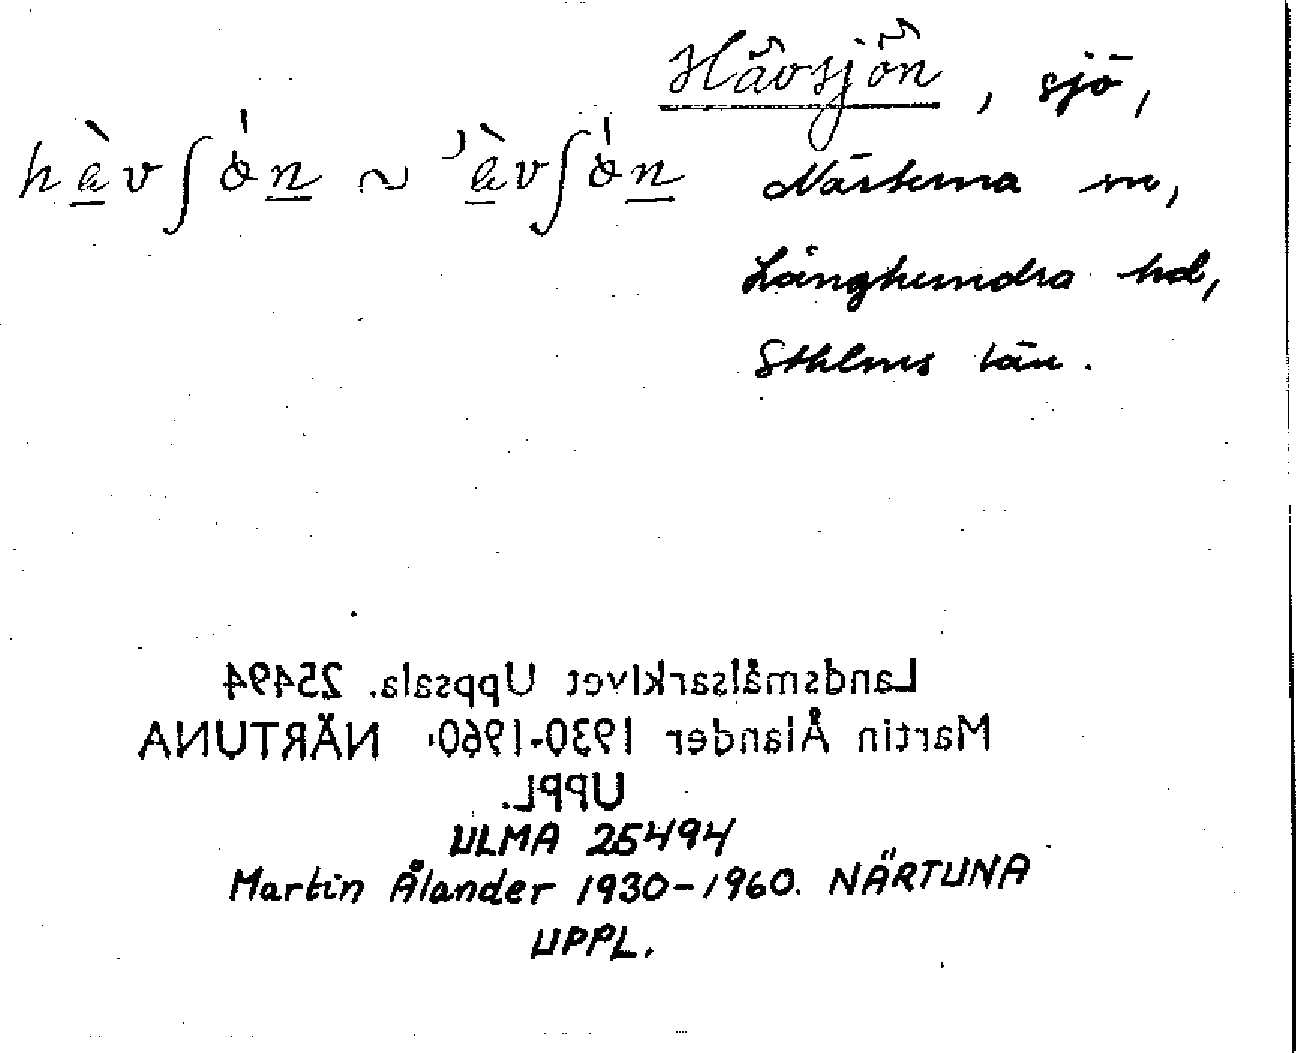 Hävsjön, sjö,
hàvʃȯ́n ~ 'àvʃȯ́n Närtuna sn,
Långhundra hd,
Sthlms län.
Landsmålsarkivet Uppsala. 25494
Martin Ålander 1930-1960. NÄRTUNA
UPPL.
ULMA 25494
Martin Ålander 1930-1960. NÄRTUNA
UPPL.